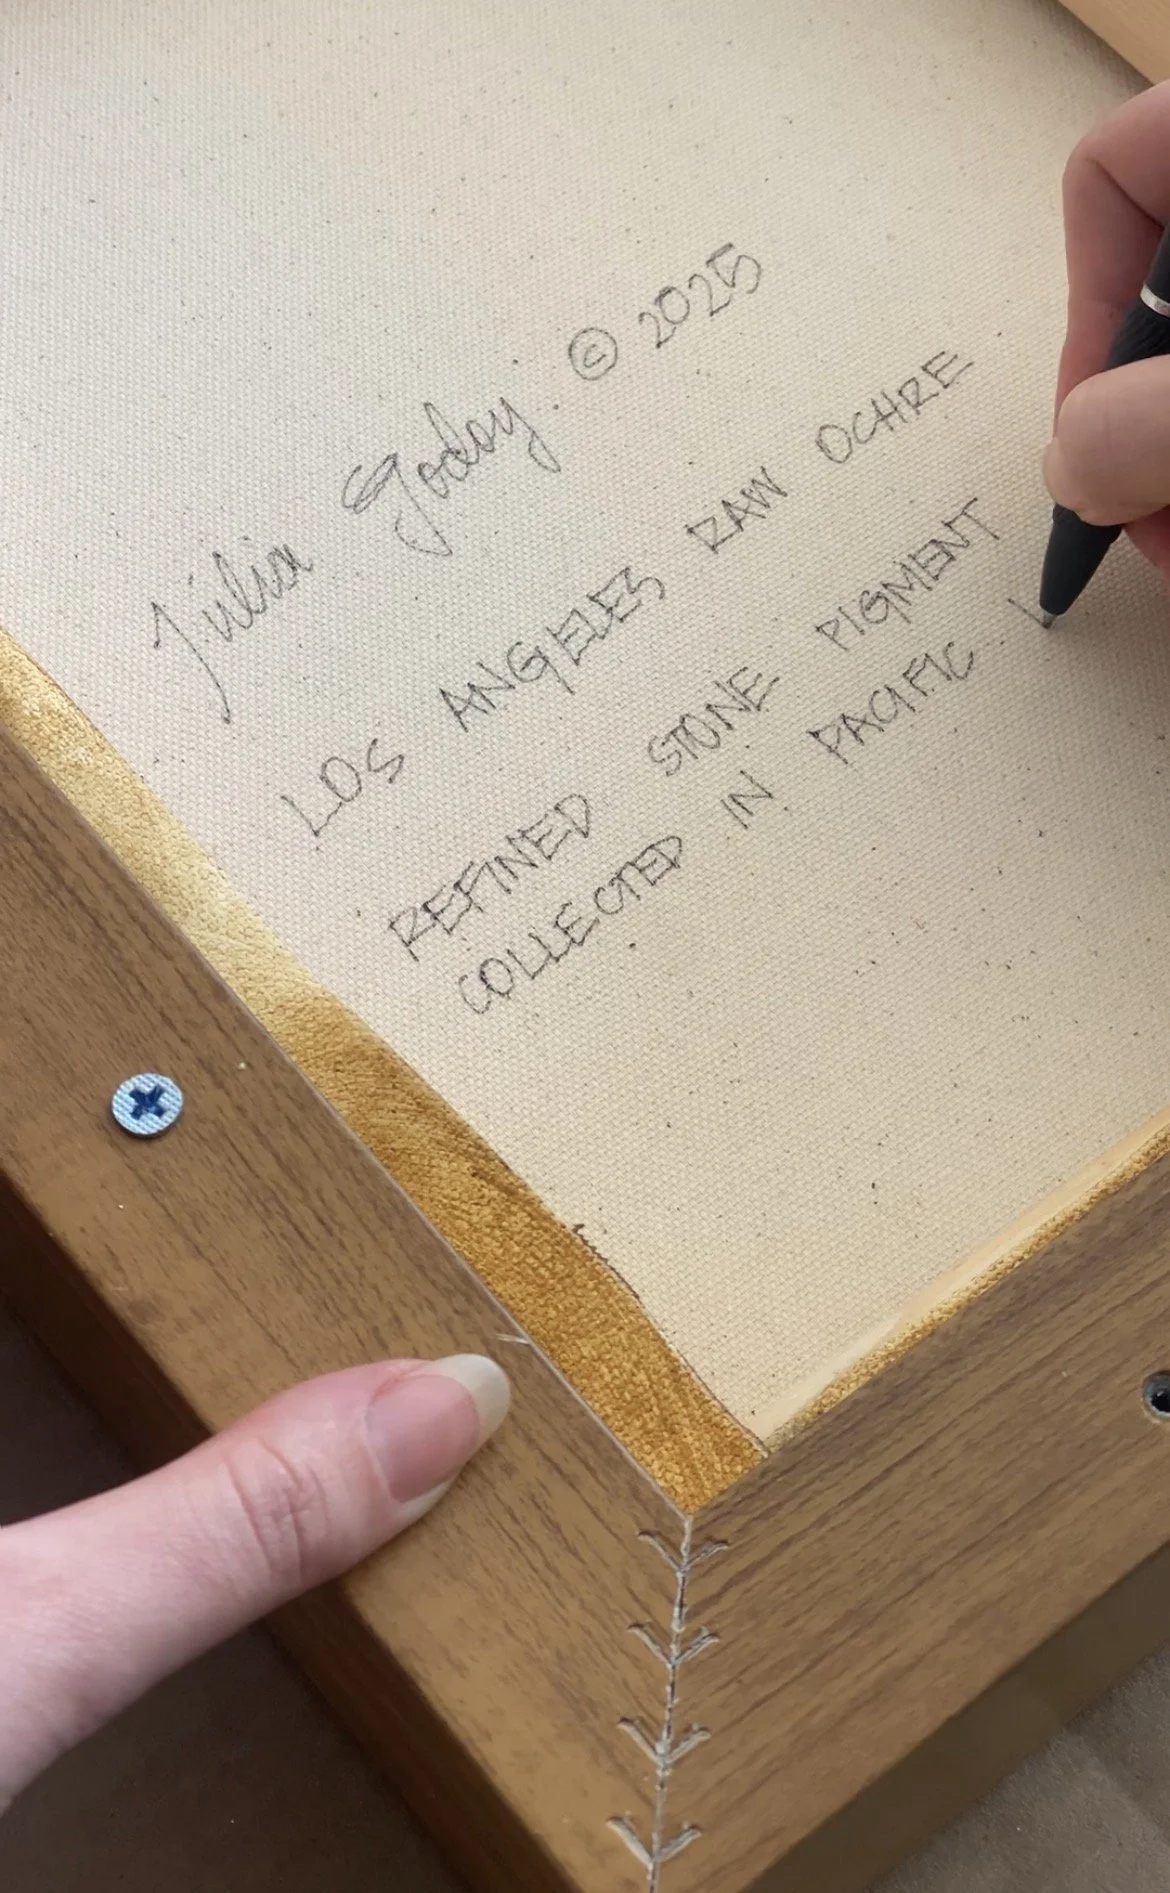 Julia Godoy © 2025
LOS ANGELES RAW OCHRE
REFINED STONE PIGMENT
COLLECTED IN PACIFIC